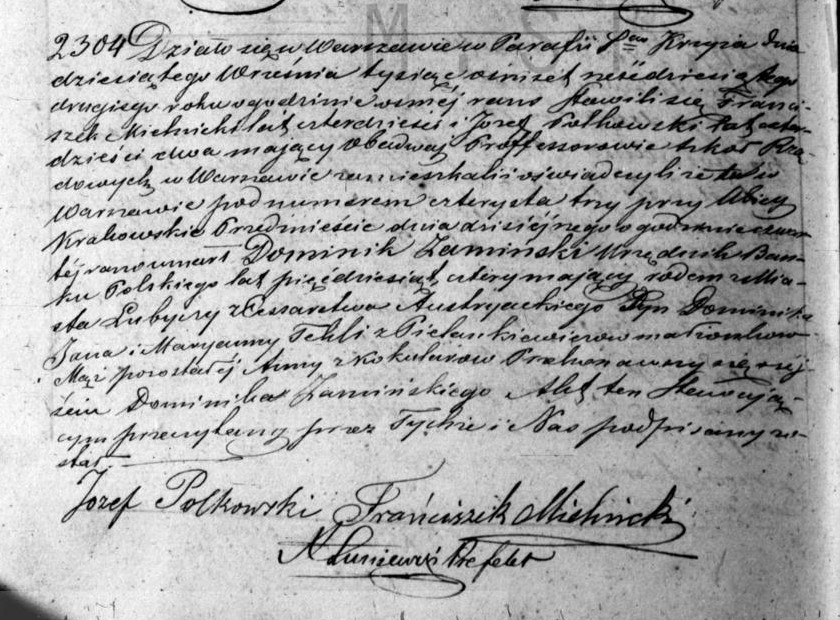 2304 Działo się w Warszawie w Parafii Sgo Krzyża dnia
dziesiątego Września tysiąc ośmset sześćdziesiątego
drugiego roku o godzinie ósméj rano Stawili się Franci-
szek Mieleński lat czterdzieści i Józef Polkowski lat czter-
dzieści dwa mający Obadwaj Proffessorowie szkół Rzą-
dowych w Warszawie zamieszkali i oświadczyli że tu w
Warszawie pod numerem czterysta trzy przy Ulicy
Krakowskie Przedmieście dnia dzisiejszego o godzinie czwar-
téj rano umarł Dominik Zamiński Urzędnik Ban-
ku Polskiego lat pięćdziesiąt cztery mający rodem z Mia-
sta Lubyczy z Cessarstwa Austryackiego Syn Dominika
Jana i Maryanny Tekli z małżonków
Mąż pozostałéj Anny z Kokularów Przekonawszy się o zéj-
ściu Dominika Zamińskiego Akt ten Stawają-
cym przeczytany przez Tychże i Nas podpisany zo-
stał
Jozef Polkowski Frańciszek
Prefekt